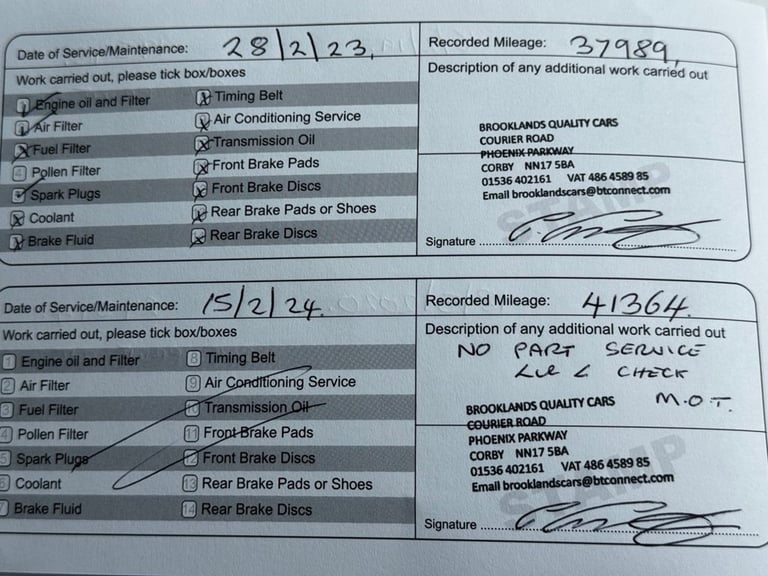 Date of Service/Maintenance: 28/2/23,
Recorded Mileage: 37989,
Work carried out, please tick box/boxes
Description of any additional work carried out
1 Engine oil and Filter
Timing Belt
Air Filter
Air Conditioning Service
Fuel Filter
Transmission Oil
4 Pollen Filter
Front Brake Pads
Spark Plugs
Front Brake Discs
Coolant
Rear Brake Pads or Shoes
Brake Fluid
Rear Brake Discs
BROOKLANDS QUALITY CARS
COURIER ROAD
PHOENIX PARKWAY
CORBY NN17 5BA
01536 402161 VAT 486 4589 85
Email brooklandscars@btconnect.com
STAMP
Signature
Date of Service/Maintenance: 15/2/24.
Recorded Mileage: 41364.
Work carried out, please tick box/boxes
Description of any additional work carried out
1 Engine oil and Filter
8 Timing Belt
2 Air Filter
9 Air Conditioning Service
3 Fuel Filter
10 Transmission Oil
4 Pollen Filter
11 Front Brake Pads
5 Spark Plugs
12 Front Brake Discs
6 Coolant
13 Rear Brake Pads or Shoes
7 Brake Fluid
14 Rear Brake Discs
NO PART SERVICE
CHECK
M.O.T.
BROOKLANDS QUALITY CARS
COURIER ROAD
PHOENIX PARKWAY
CORBY NN17 5BA
01536 402161 VAT 486 4589 85
Email brooklandscars@btconnect.com
STAMP
Signature